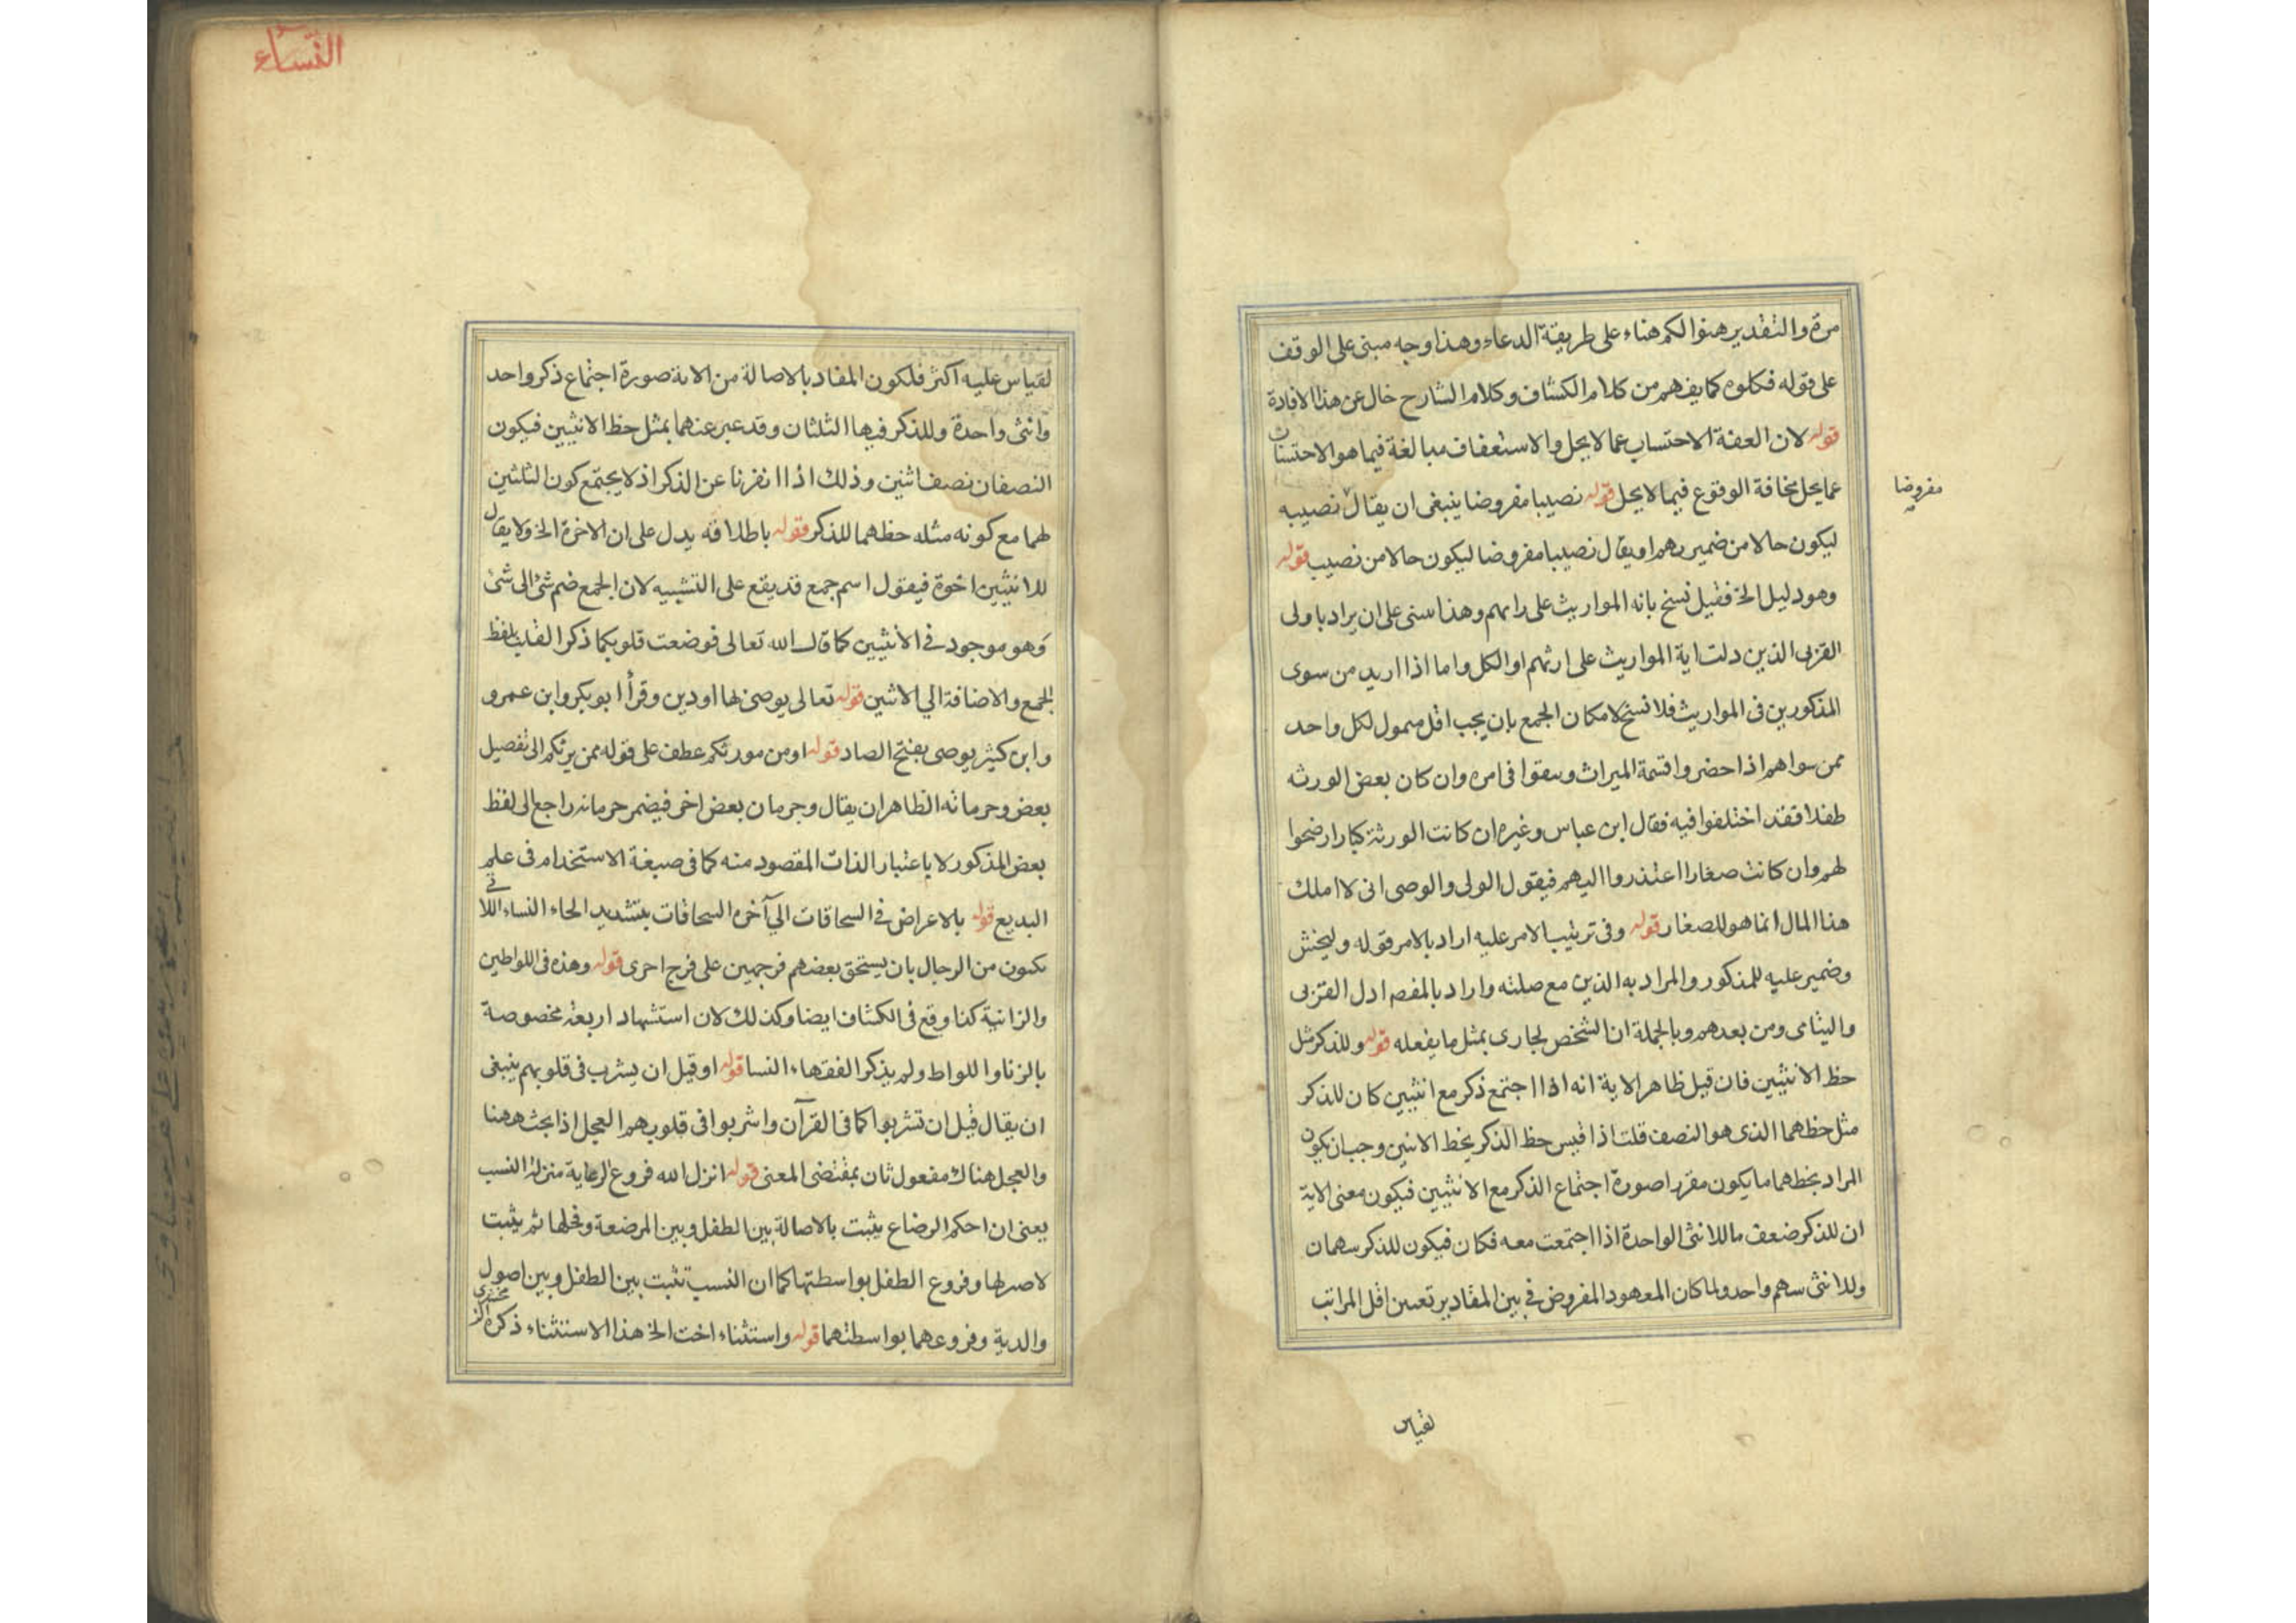 مرة والتقدير هنوا لكم هناء على طريقة الدعاء وهذا وجه مبنى على الوقف
على قوله فكلوه كما يفهم من كلام الكشاف وكلام الشارح خال عن هذا الافادة
قوله لان العفة الاحتساب عما لا يحل والاستعفاف مبالغة فيما هو الاحتساب
عما يحل مخافة الوقوع فيما لا يحل قوله نصيبا مفروضا ينبغى ان يقال نصيبه
مفروضا
ليكون حالا من ضميرهم او يقال نصيبا مفروضا ليكون حالا من نصيب قوله
وهو دليل الخ فقيل نسخ بانه المواريث على وهذا مبنى على ان يراد باولى
القربى الذين دلت اية المواريث على ارثهم او الكل واما اذا اريد من سوى
المذكورين فى المواريث فلا نسخ لامكان الجمع بان يجب اقل ممول لكل واحد
ممن سواهم اذا حضروا قسمة الميراث فى امره وان كان بعض الورثه
طفلا فقد اختلفوا فيه فقال ابن عباس وغيره ان كانت الورثة كبارا رضخوا
لهم وان كانت صغارا اعتذروا اليهم فيقول الولى والوصى انى لا املك
هذا المال انما هو للصغار قوله وفى ترتيب الامر عليه اراد بالامر قوله وليخش
وضمير عليه للمذكور والمراد به الذين مع صلته واراد بالمقصد ادل القربى
واليتامى ومن بعدهم وبالجملة ان الشخص يجارى بمثل ما يفعله قوله وللذكر مثل
حظ الانثيين فان قيل ظاهر الاية انه اذا اجتمع ذكر مع انثيين كان للذكر
مثل حظهما الذى هو النصف قلت اذا قيس حظ الذكر بحظ الاثنين وجب ان يكون
المراد بحظهما ما يكون مقررا صورة اجتماع الذكر مع الانثيين فيكون معنى الاية
ان للذكر ضعف ما للانثى الواحدة اذا اجتمعت معه فكان فيكون للذكر سهمان
وللانثى سهم واحد ولما كان المعهود المفروض فى بين المقادير تعين اقل المراتب
لقياس
النساء
لقياس عليه اكثر فلكون المفاد بالاصالة من الاية صورة اجتماع ذكر واحد
وانثى واحدة وللذكر فيها الثلثان وقد عبر عنهما بمثل حظ الانثيين فيكون
النصفان نصف اثنين وذلك اذا انفرنا عن الذكر اذ لا يجتمع كون الثلثين
لهما مع كونه مثله حظهما للذكر قوله باطلاقه يدل على ان الاخرة الخ ولا يقال
للانثيين اخوة فيقول اسم جمع قد يقع على التشبيه لان الجمع ضم شئ الى شئ
وهو موجود فى الانثيين كما قال الله تعالى فوضعت قلوبكما ذكر القلب بلفظ
الجمع والاضافة الى الاثنين قوله تعالى يوصى بها او دين وقرأ ابو بكر وابن عمرو
وابن كثير يوصى بفتح الصاد قوله او من مورثكم عطف على قوله ممن يرثكم الى تفصيل
بعض وحرمانه الظاهر ان يقال وحرمان بعض اخر فيضمر حرمانه راجع الى لفظ
بعض المذكور لا باعتبار الذات المقصود منه كما فى صبغة الاستخدام فى علم
البديع قوله بالاعراض فى السحاقات الى آخره السحاقات بتشديد الحاء النساء اللاتى
تكون من الرجال بان يستحق بعضهم فرجهن على فرج اخرى قوله وهذه فى اللواطين
والزانية كذا وقع فى الكشاف ايضا وكذلك لان استشهاد اربعة مخصوصة
بالزنا واللواط ولم يذكر الفقهاء النسا قوله او قيل ان يشرب فى قلوبهم ينبغى
ان يقال قيل ان تشربوا كما فى القرآن واشربوا فى قلوبهم العجل اذا بحث ههنا
والعجل هناك مفعول ثان بمقتضى المعنى قوله انزل الله فروع الرعاية منزلة النسب
يعنى ان احكم الرضاع يثبت بالاصالة بين الطفل وبين المرضعة وفحلها ثم يثبت
لاصولها وفروع الطفل بواسطتها كما ان النسب تثبت بين الطفل وبين اصول
والدية وفروعهما بواسطتهما قوله واستثناء اخت الخ هذا الاستثناء ذكره الزمخشرى